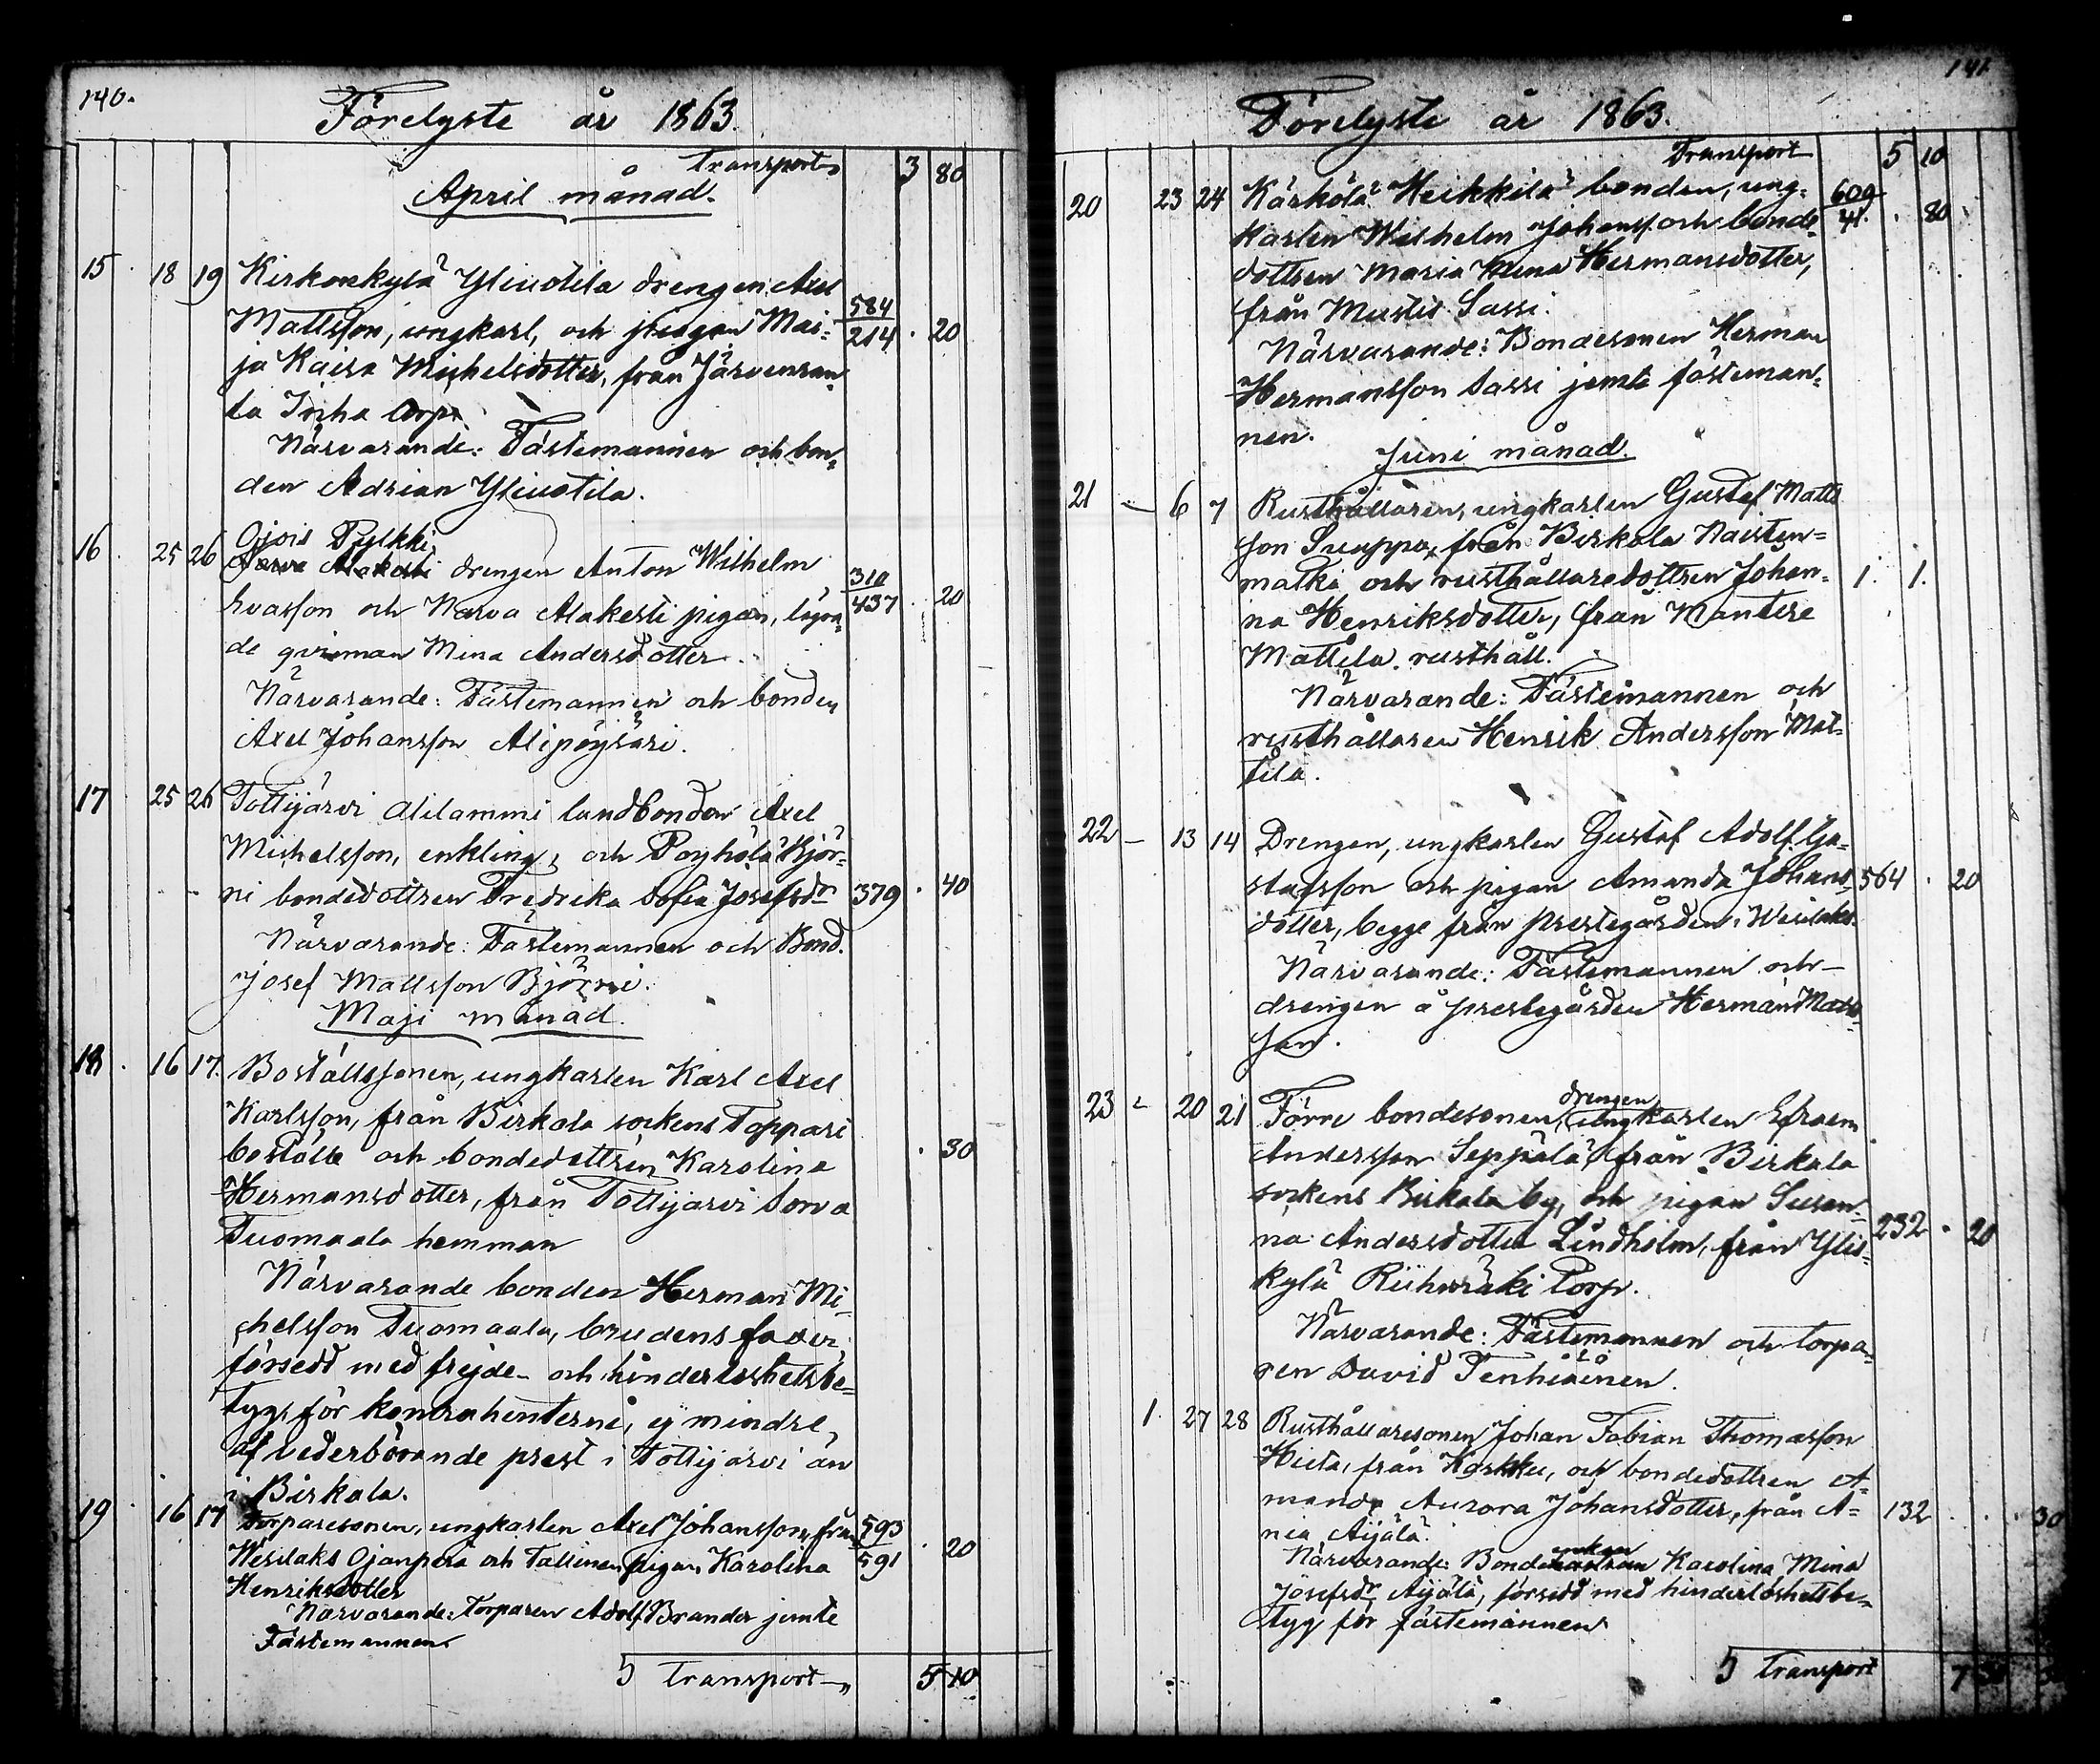 140.
Förelyste år 1863.
Transport 3 80
April månad.
15. 18 19 Kirkonkylä Yliuotila drengen Axel
Mattsson, ungkarl, och pigan Mai- 584/214 . 20
ja Kaisa Michelsdotter, från Järvenran-
ta Inha torp.
Närvarande: Fästemannen och bon-
den Adrian Yliuotila.
Ojois Pylkki
16. 25 26 drengen Anton Wilhelm 310/437 . 20
Ivarsson och Narva Alakesti pigan,
de qvinnan Mina Andersdotter.
Närvarande: Fästemannen och bonden
Axel Johansson Alipöysäri.
17 25 26 Tottijärvi Alilammi landbonden Axel
Michelsson, enkling, och Poyhölä Björ-
ni bondedottren Fredrika Sofia Josefsdr 379 . 40
Närvarande: Fästemannen och Bond.
Josef Mattsson Björni.
Maji månad.
18. 16 17. Boställssonen, ungkarlen Karl Axel
Karlsson, från Birkala sockens Toppari
boställe och bondedottren Karolina . 30
Hermansdotter, från Tottijärvi Sorva
Tuomaala hemman
Närvarande bonden Herman Mi-
chelsson Tuomaala, brudens fader,
försedd med frejde- och hinderlöshetsbe-
tyg för kontrahenterne, ej mindre
af vederbörande prest i Tottijärvi än
i Birkala.
19. 16 17 Torparesonen, ungkarlen Axel Johansson, från 593/591 . 20
Wesilaks Ojanperä och Tallinen pigan Karolina
Henriksdotter
Närvarande: Torparen Adolf Brander jemte
Fästemannen
5 Transport 5 10
141
Förelyste år 1863.
Transport 5 10
20 23 24 Kärkölä Heikkilä bonden, ung- 609/41. . 80
karlen Wilhelm Johansson och bonde-
dottren Maria Miina Hermansdotter,
från Mustis Sassi.
Närvarande: Bondesonen Herman
Hermansson Sassi jemte fästeman-
nen.
Juni månad.
21 - 6 7 Rusthållaren, ungkarlen Gustaf Matts
son Suuppa, från Birkala Naisten-
matka och rusthållaredottren Johan- 1. 1.
na Henriksdotter, från Mantere
Mattila rusthåll.
Närvarande: Fästemannen och
rusthållaren Henrik Andersson Mat-
tila.
22 - 13 14 Drengen, ungkarlen Gustaf Adolf Gu-
stafsson och pigan Amanda Johans- 564 . 20
dotter, begge från prestegården i Wesilaks.
Närvarande: Fästemannen och
drengen å prestegården Herman Mats-
son.
23 - 20 21 Förre bondesonen, drengen ungkarlen Efraim
Andersson Seppälä från Birkala
sockens Birkala by, och pigan Susan-
na Andersdotter Lindholm, från Ylis- 232 . 20
kylä torp.
Närvarande: Fästemannen och torpa-
ren David Tenhiäinen.
1. 27 28 Rusthållaresonen Johan Fabian Thomasson
Hiita, från Karkku, och bondedottren A-
manda Aurora Johansdotter, från A- 132 . . 30
nia Äijälä.
Närvarande: Bondeenkan Karolina Mina
Josefsdr Äijälä, försedd med hinderlöshetsbe-
tyg för fästemannen
5 Transport 7 30